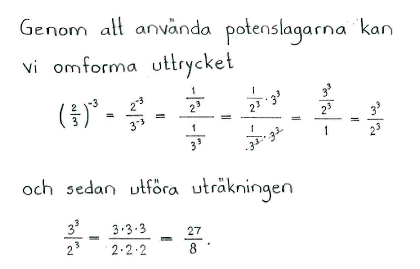 Genom att använda potenslagarna kan
vi omforma uttrycket
(2/3)^-3 = 2^-3/3^-3 = (1/2^3)/(1/3^3) = (1/2^3 · 3^3)/(1/3^3 · 3^3) = (3^3/2^3)/1 = 3^3/2^3
och sedan utföra uträkningen
3^3/2^3 = 3·3·3/2·2·2 = 27/8.